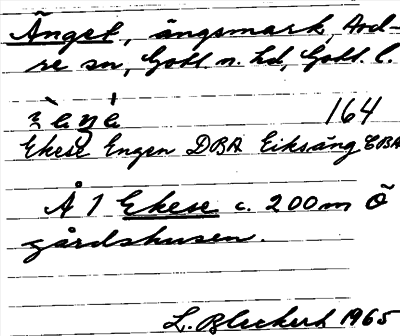 Änget, ängsmark, Ard-
re sn, Gotl. n. hd, Gotl. l.
164
Ekese Engen DBA Eiksäng EBA
Å 1 Ekese c. 200 m Ö
gårdshusen.
L. Bleckert 1965